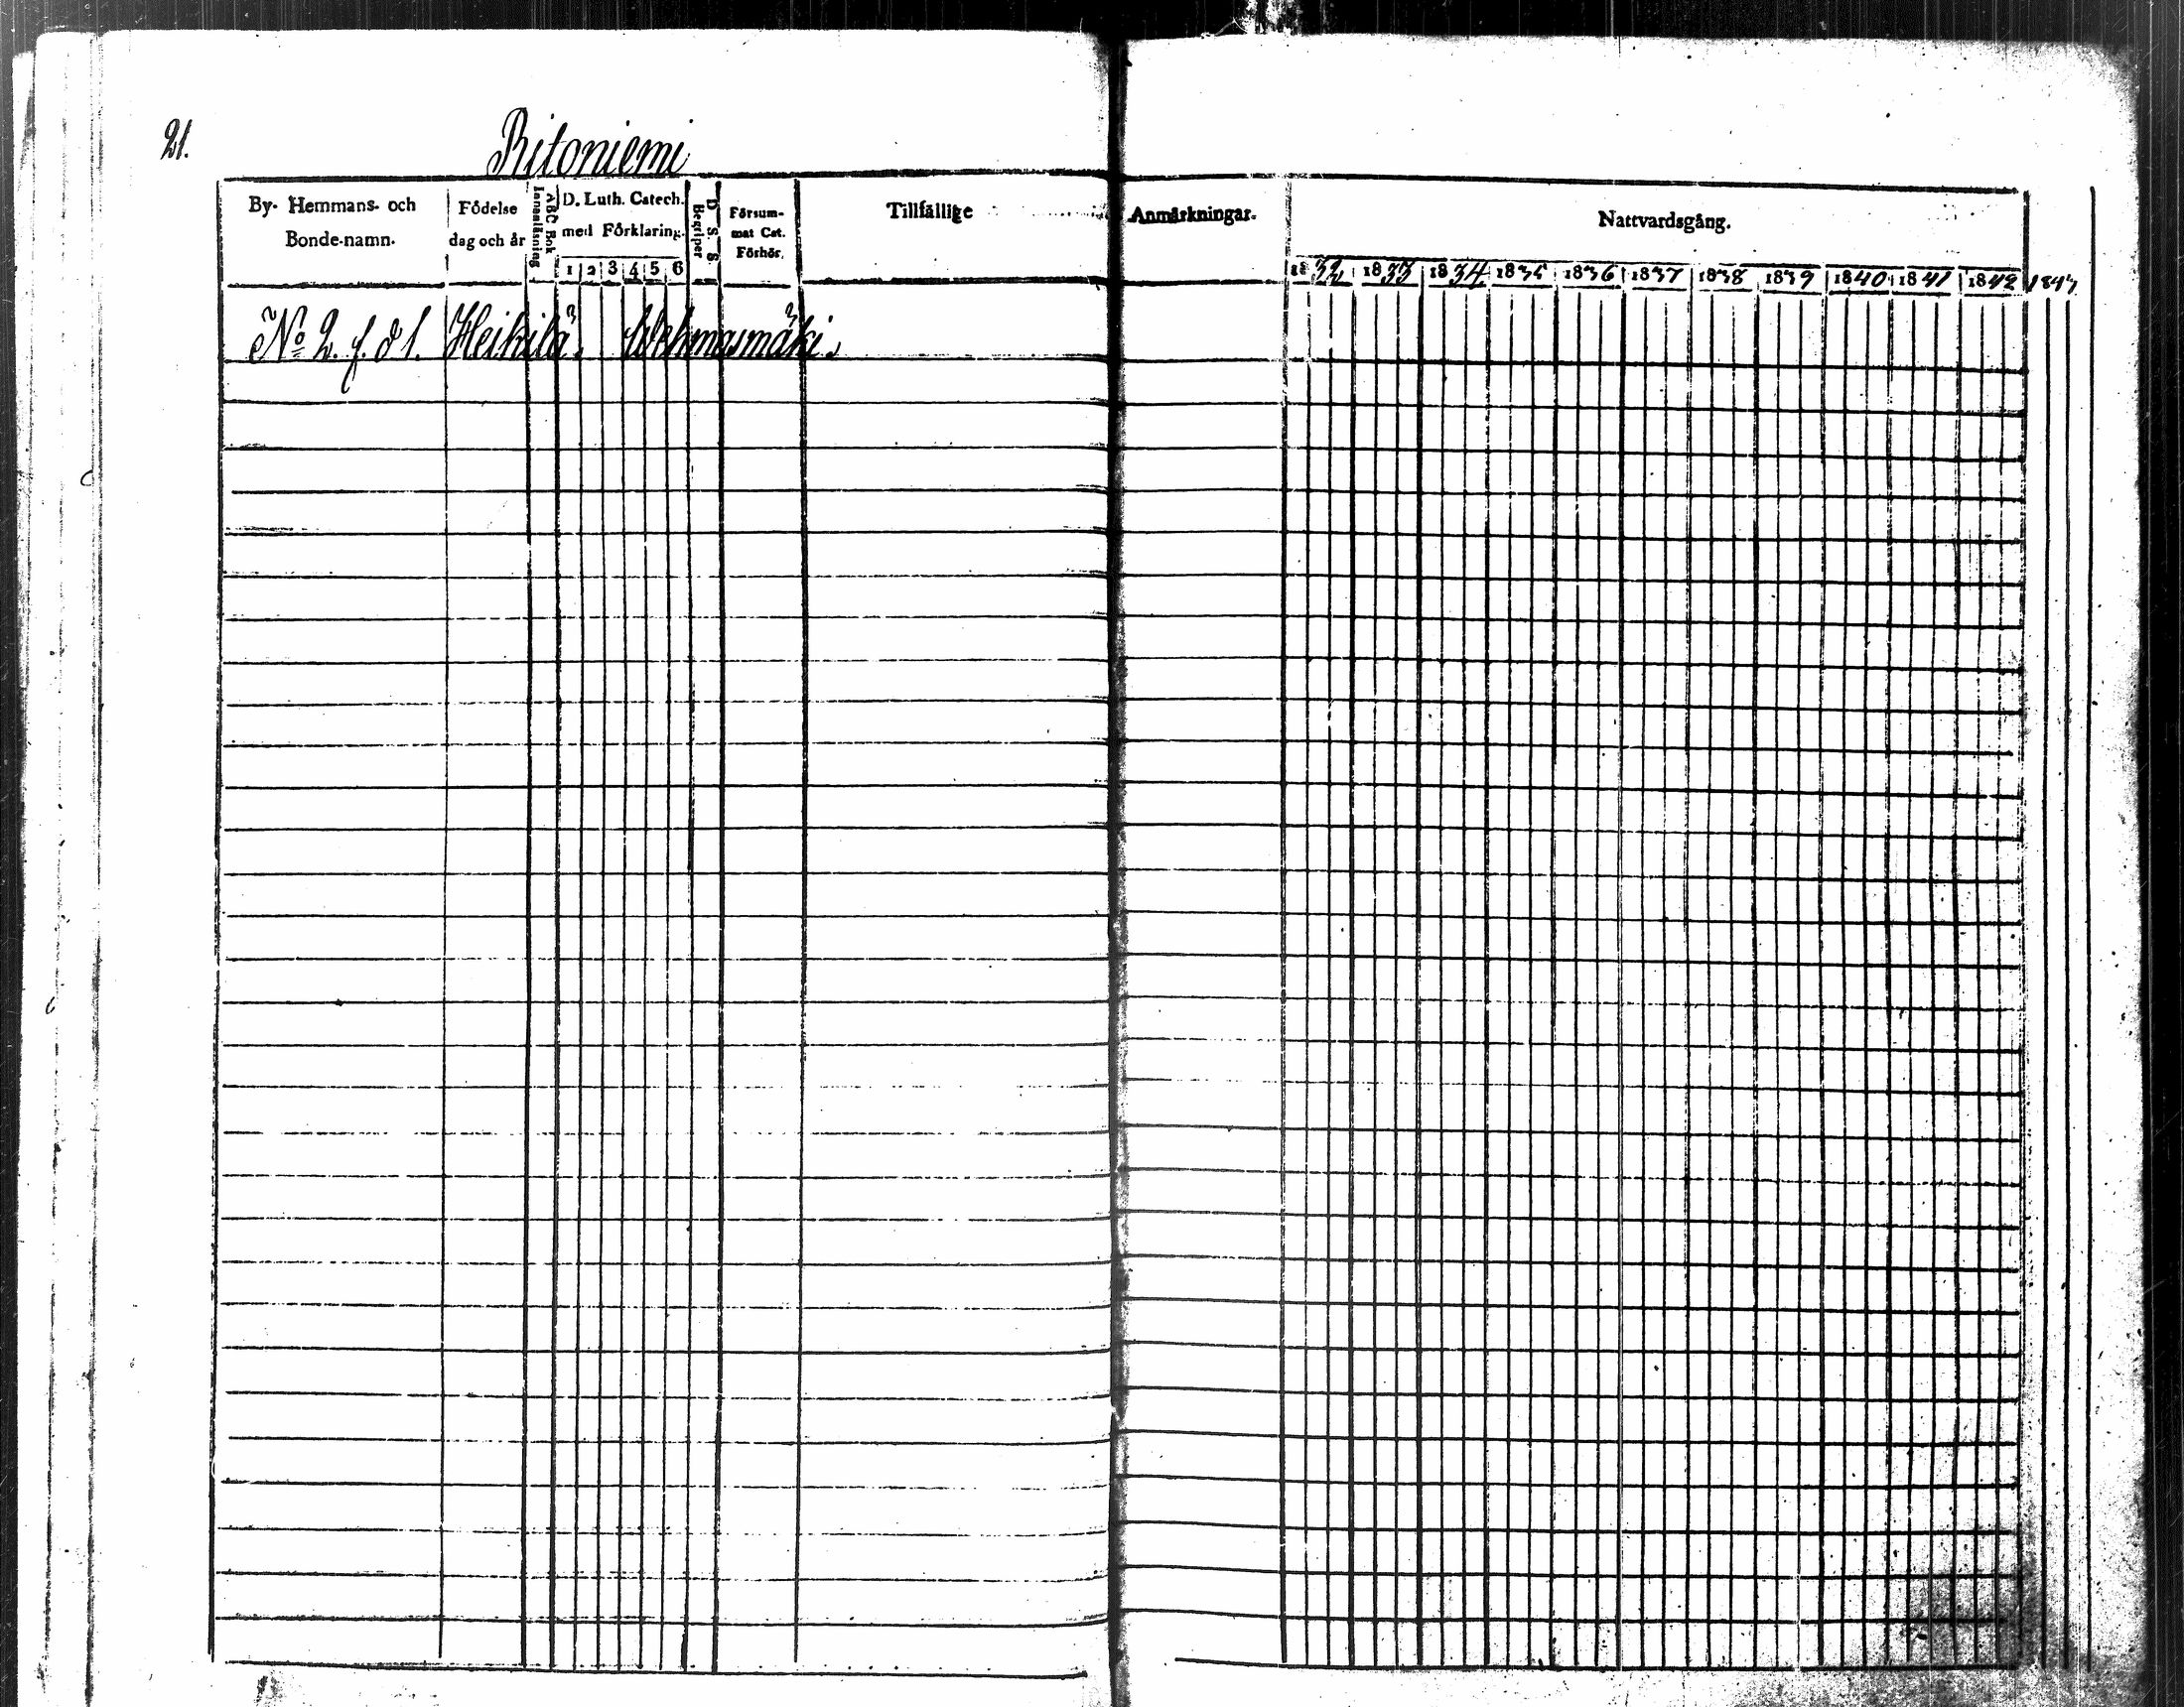 21.
Ritoniemi
By- Hemmans- och Bonde-namn.
Födelse dag och år
Innanläsning
ABC Bok
D. Luth. Catech. med Förklaring.
1 2 3 4 5 6
Begriper
D. S. S.
Försummat Cat. Förhör.
Tillfällige Anmärkningar.
Nattvardsgång.
1832 1833 1834 1835 1836 1837 1838 1839 1840 1841 1842 1843
No 2. f. d 1. Heikilä. Wehmasmäki.